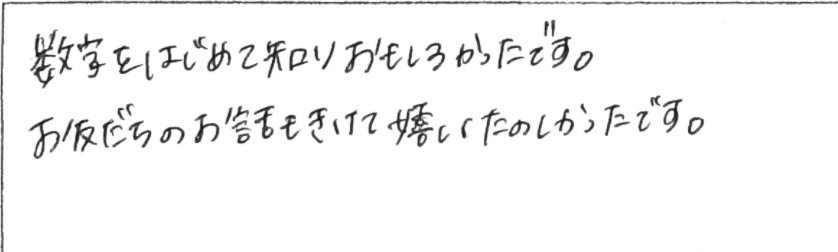 数字をはじめて知りおもしろかったです。
お友だちのお話もきけて嬉しくたのしかったです。